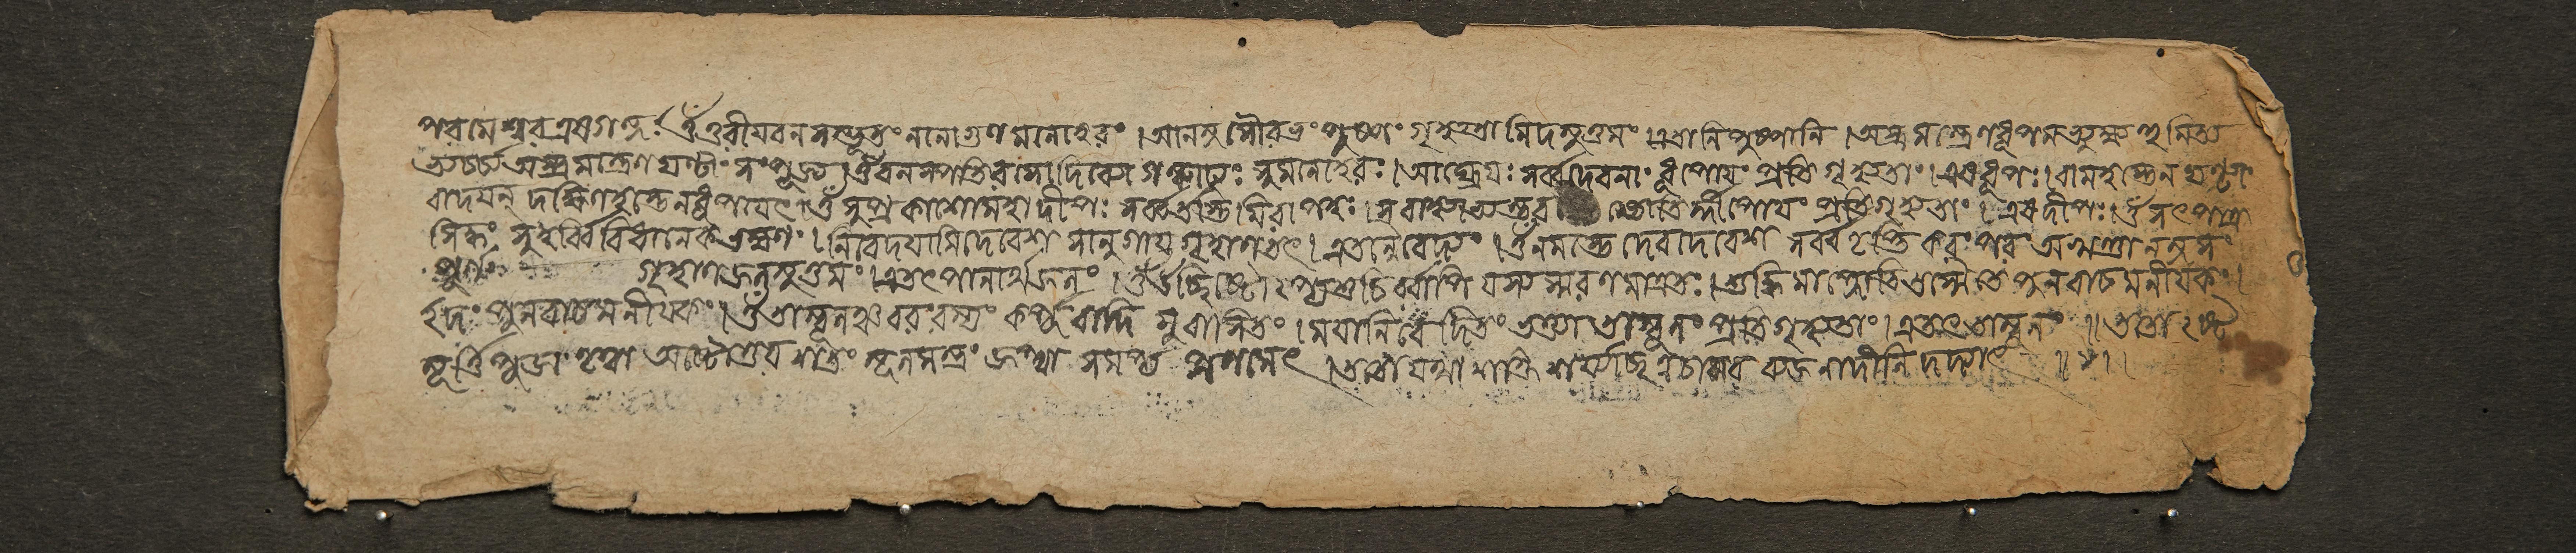 পরমেশ্বর এষ গন্ধঃ ওঁ তুরীয়বনসম্ভূতং নানাগুণমনোহরং । আনন্দসৌরভং পুষ্পং গৃহ্যতামিদমুত্তমং । এতানি পুষ্পানি । অস্ত্রমন্ত্রেণ ধূপমভ্যুক্ষ্য
অস্ত্রমন্ত্রেণ ঘণ্টাং সংপূজ্য । ওঁ বনস্পতিরসো দিব্যো গন্ধাঢ্যঃ সুমনোহরঃ । আঘ্রেয়ঃ সর্ব্বদেবানাং ধূপোয়ং প্রতিগৃহ্যতাং । এষ ধূপঃ । বামহস্তেন ঘণ্টাং
বাদয়ন্ দক্ষিণহস্তেন ধূপায়েৎ । ওঁ সুপ্রকাশো মহাদীপঃ সর্ব্বত্র তিমিরাপহঃ । সবাহ্যাভ্যন্তর জ্যোতির্দ্দীপোয়ং প্রতিগৃহ্যতাং । এষ দীপঃ । ওঁ সৎপাত্র
সিদ্ধং সুহবির্ব্বিবিধানেকভক্ষণং । নিবেদয়ামি দেবেশ সানুগায় গৃহাণ তৎ । এতন্নৈবেদ্যং । ওঁ নমস্তে দেবদেবেশ সর্ব্বতৃপ্তিকরং পরং
পূর্ণং গৃহাণ জলমুত্তমং । এতৎ পানার্থজলং । ওঁ উচ্ছিষ্টোঽপ্যশুচির্ব্বাপি যস্য স্মরণমাত্রতঃ । শুদ্ধিমাপ্নোতি তস্মৈ তে পুনরাচমনীয়কং ।
ইদং পুনরাচমনীয়কং । ওঁ তাম্বূলঞ্চ বরং রম্যং কর্পূরাদি সুবাসিতং । ময়া নিবেদিতং ভক্ত্যা তাম্বূলং প্রতিগৃহ্যতাং । এতৎ তাম্বূলং ॥ ততোঽষ্ট
মূর্ত্তিপূজাং কৃত্বা অষ্টোত্তরশতং মূলমন্ত্রং জপ্ত্বা সমর্প্য প্রণমেৎ । ততো যথাশক্তি দদ্যাৎ ॥